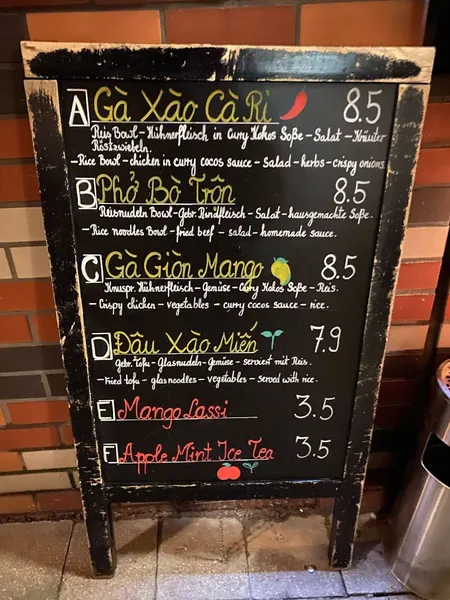 A Gà Xào Cà Ri 8.5
Reis Bowl - Hühnerfleisch in Curry Kokos Soße - Salat - Kräuter
Röstzwiebeln.
- Rice Bowl - chicken in curry cocos sauce - Salad - herbs - crispy onions
B Phở Bò Trộn 8.5
Reisnudeln Bowl - Gebr. Rindfleisch - Salat - hausgemachte Soße.
- Rice noodles Bowl - fried beef - salad - homemade sauce.
C Gà Giòn Mango 8.5
Knuspr. Hühnerfleisch - Gemüse - Curry Kokos Soße - Reis.
- Crispy chicken - vegetables - curry cocos sauce - rice.
D Đâu Xào Miến 7.9
Gebr. Tofu - Glasnudeln - Gemüse - serviert mit Reis.
- Fried tofu - glasnoodles - vegetables - served with rice.
E Mango Lassi 3.5
F Apple Mint Ice Tea 3.5